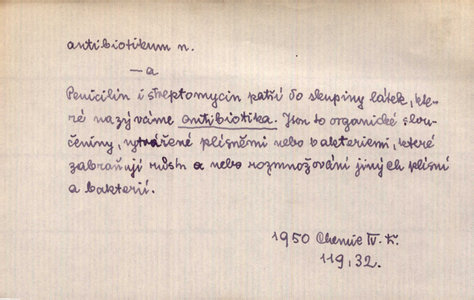 antibiotikum n.
—a
Penicilin i streptomycin patří do skupiny látek, kte-
ré nazýváme antibiotika. Jsou to organické slou-
čeniny, vytvářené plísněmi nebo bakteriemi, které
zabraňují růstu a nebo rozmnožování jiných plísní
a bakterií.
1950 Chemie IV. tř.
119, 32.